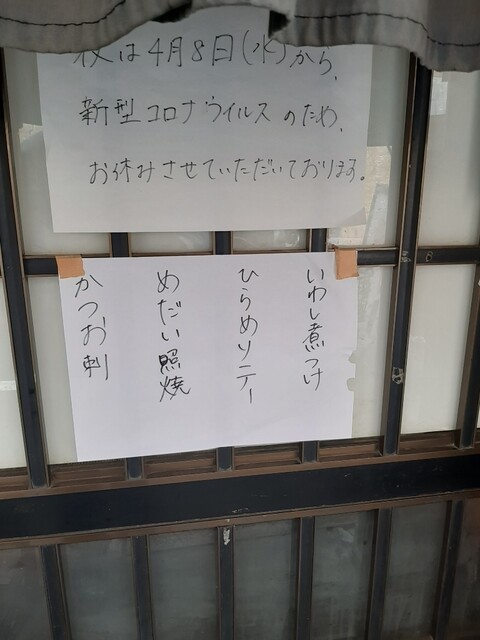 夜は4月8日(水)から、
新型コロナウイルスのため、
お休みさせていただいております。
いわし煮つけ
ひらめソテー
めだい照焼
かつお刺